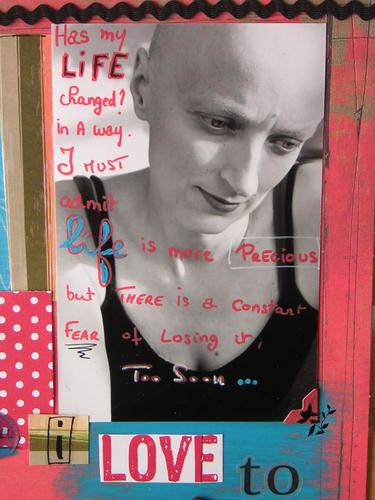 Has my
LiFE
changed?
in A way.
I MUST
admit
life is more PRECIOUS
but THERE is a Constant
FEAR of Losing it,
Too Soon ...
i LOVE to